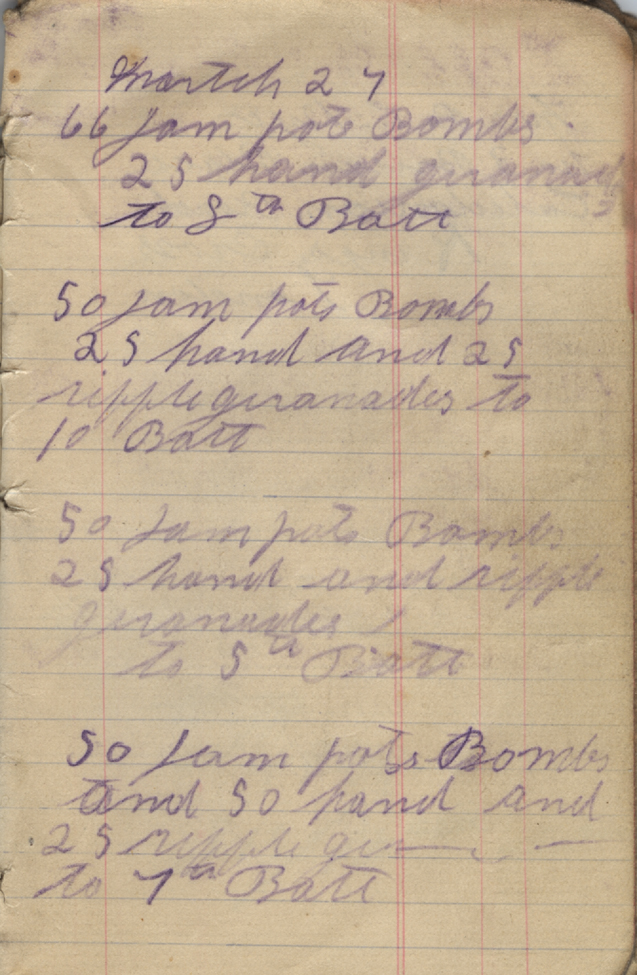 Martch 27
66 Jam pots Bombs.
25 hand giranad
s
to 8th Batt
50 Jam pots Bombs
25 hand and 25
ripple giranades to
10 Batt
50 Jam pots Bombs
25 hand and ripple
giranades
to 5th Batt
50 Jam pots Bombs
and 50 hand and
25 ripple gir— —
to 7th Batt